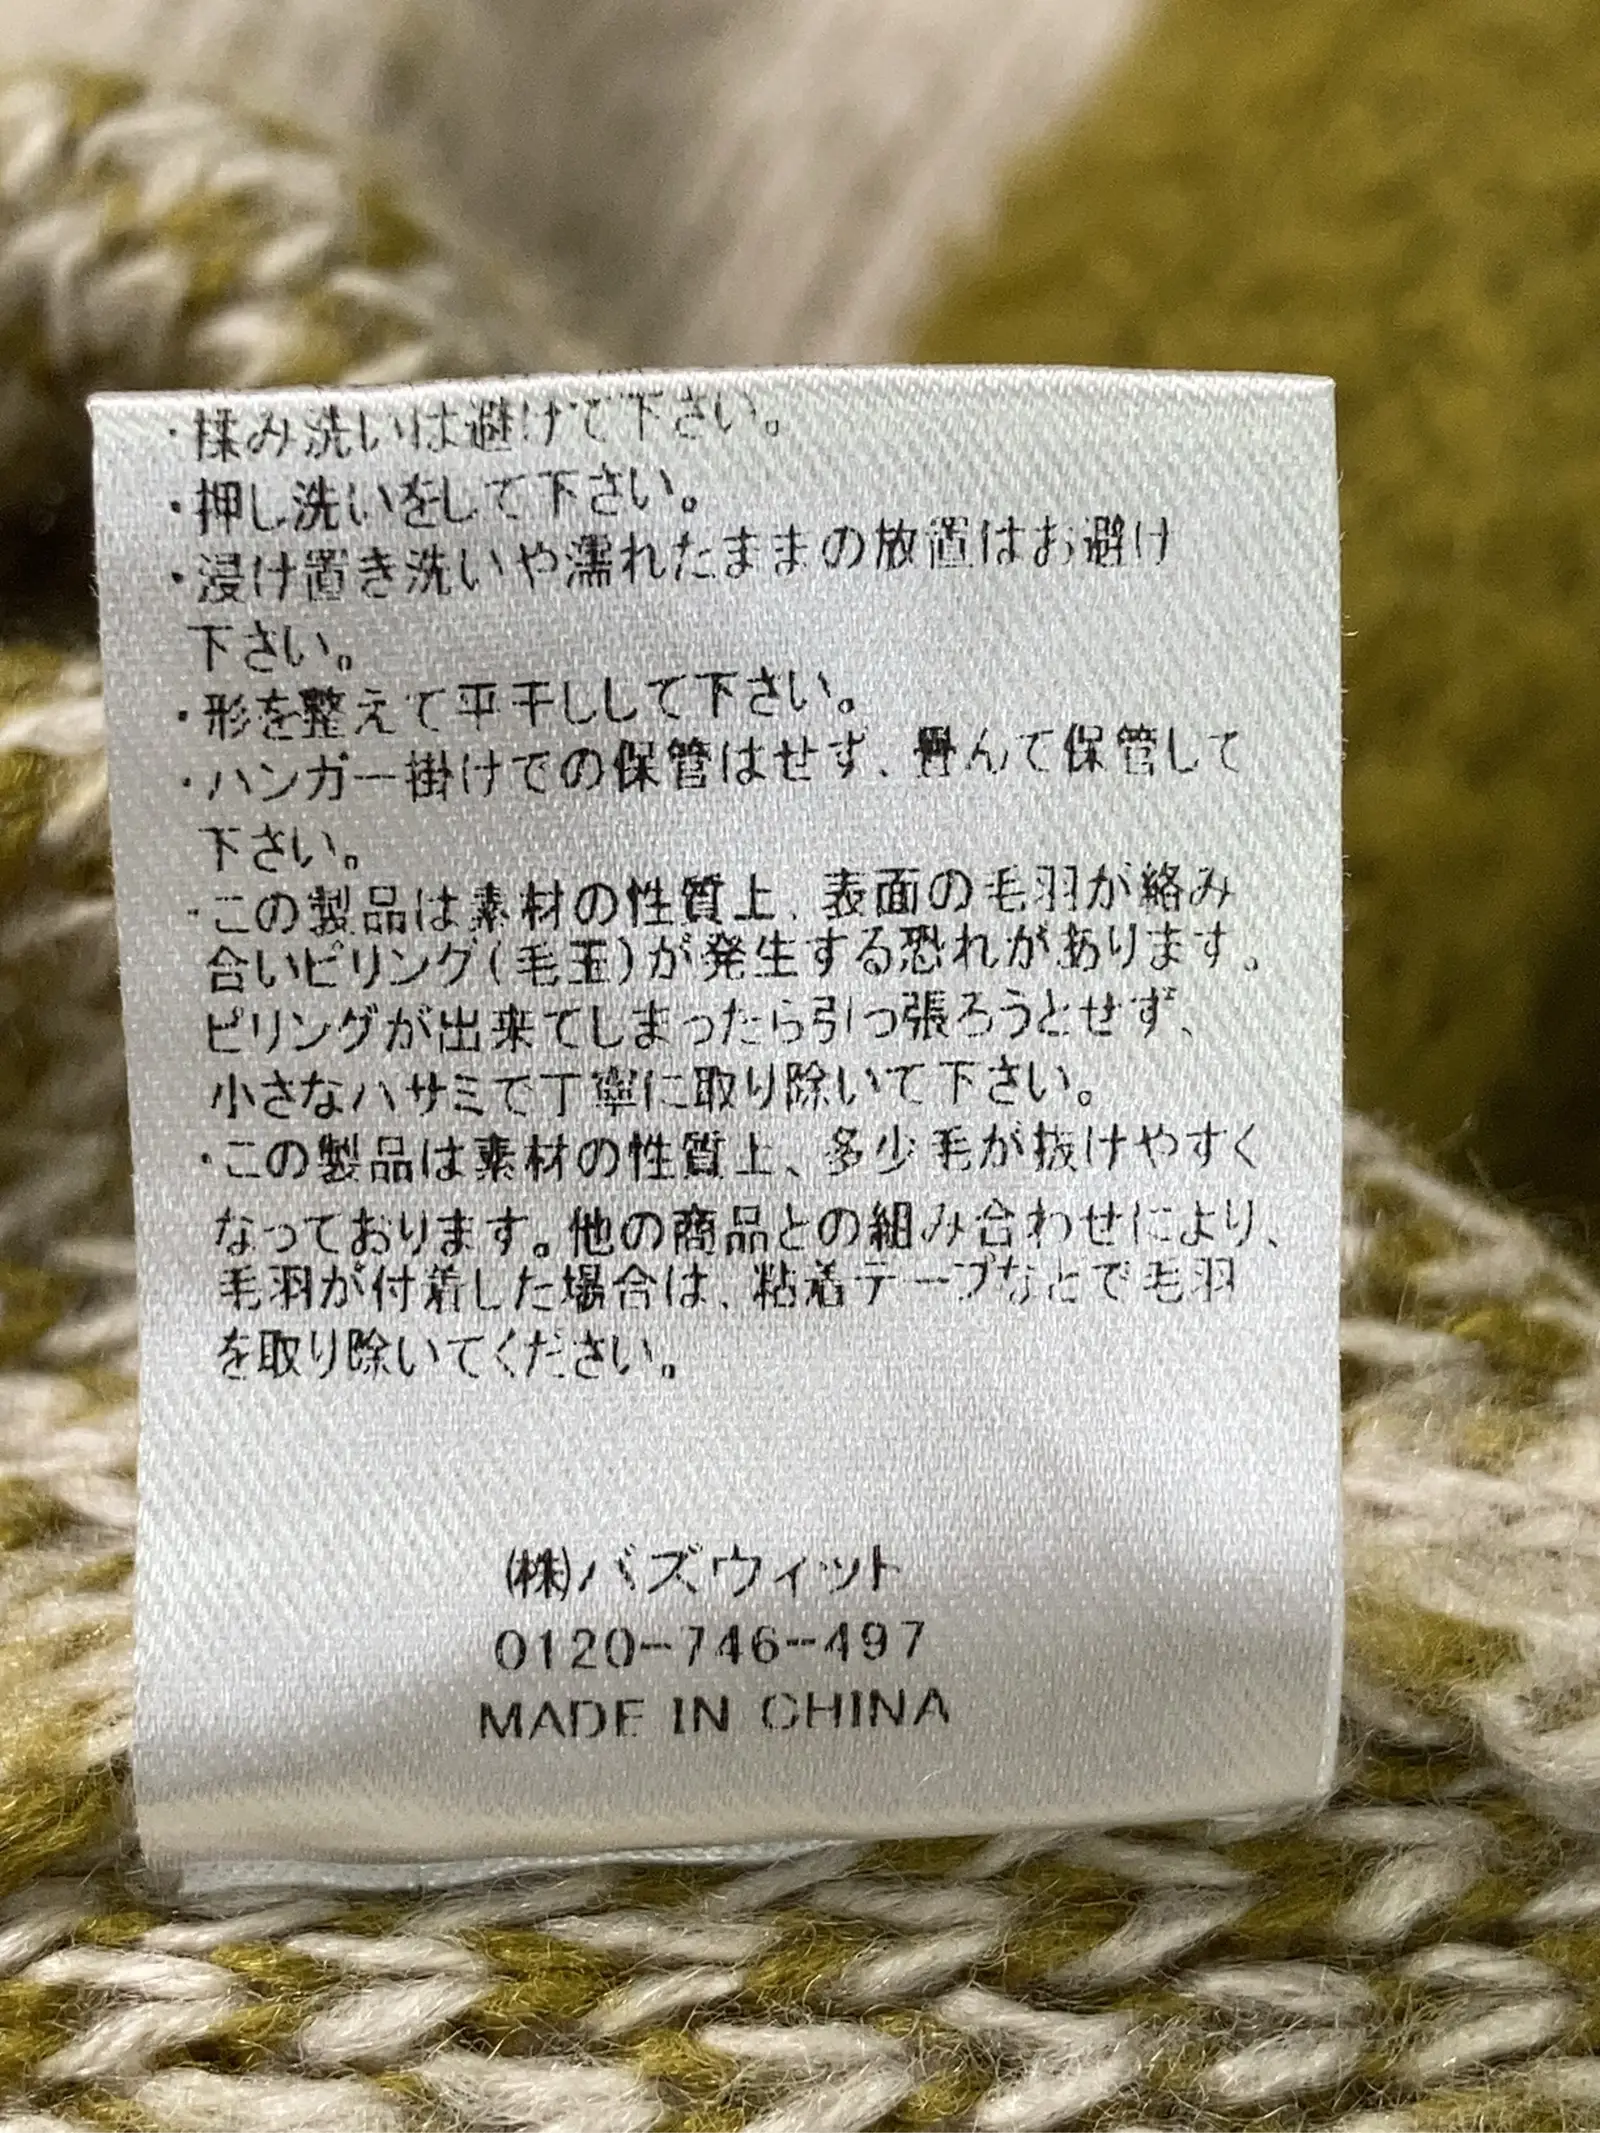 ・揉み洗いは避けて下さい。
・押し洗いをして下さい。
・浸け置き洗いや濡れたままの放置はお避け
下さい。
・形を整えて平干しして下さい。
・ハンガー掛けでの保管はせず、畳んて保管して
下さい。
・この製品は素材の性質上、表面の毛羽が絡み
合いピリング(毛玉)が発生する恐れがあります。
ピリングが出来てしまったら引っ張ろうとせず、
小さなハサミで丁寧に取り除いて下さい。
・この製品は素材の性質上、多少毛が抜けやすく
なっております。他の商品との組み合わせにより、
毛羽が付着した場合は、粘着テープなどで毛羽
を取り除いてください。
㈱バズウィット
0120-746-497
MADE IN CHINA